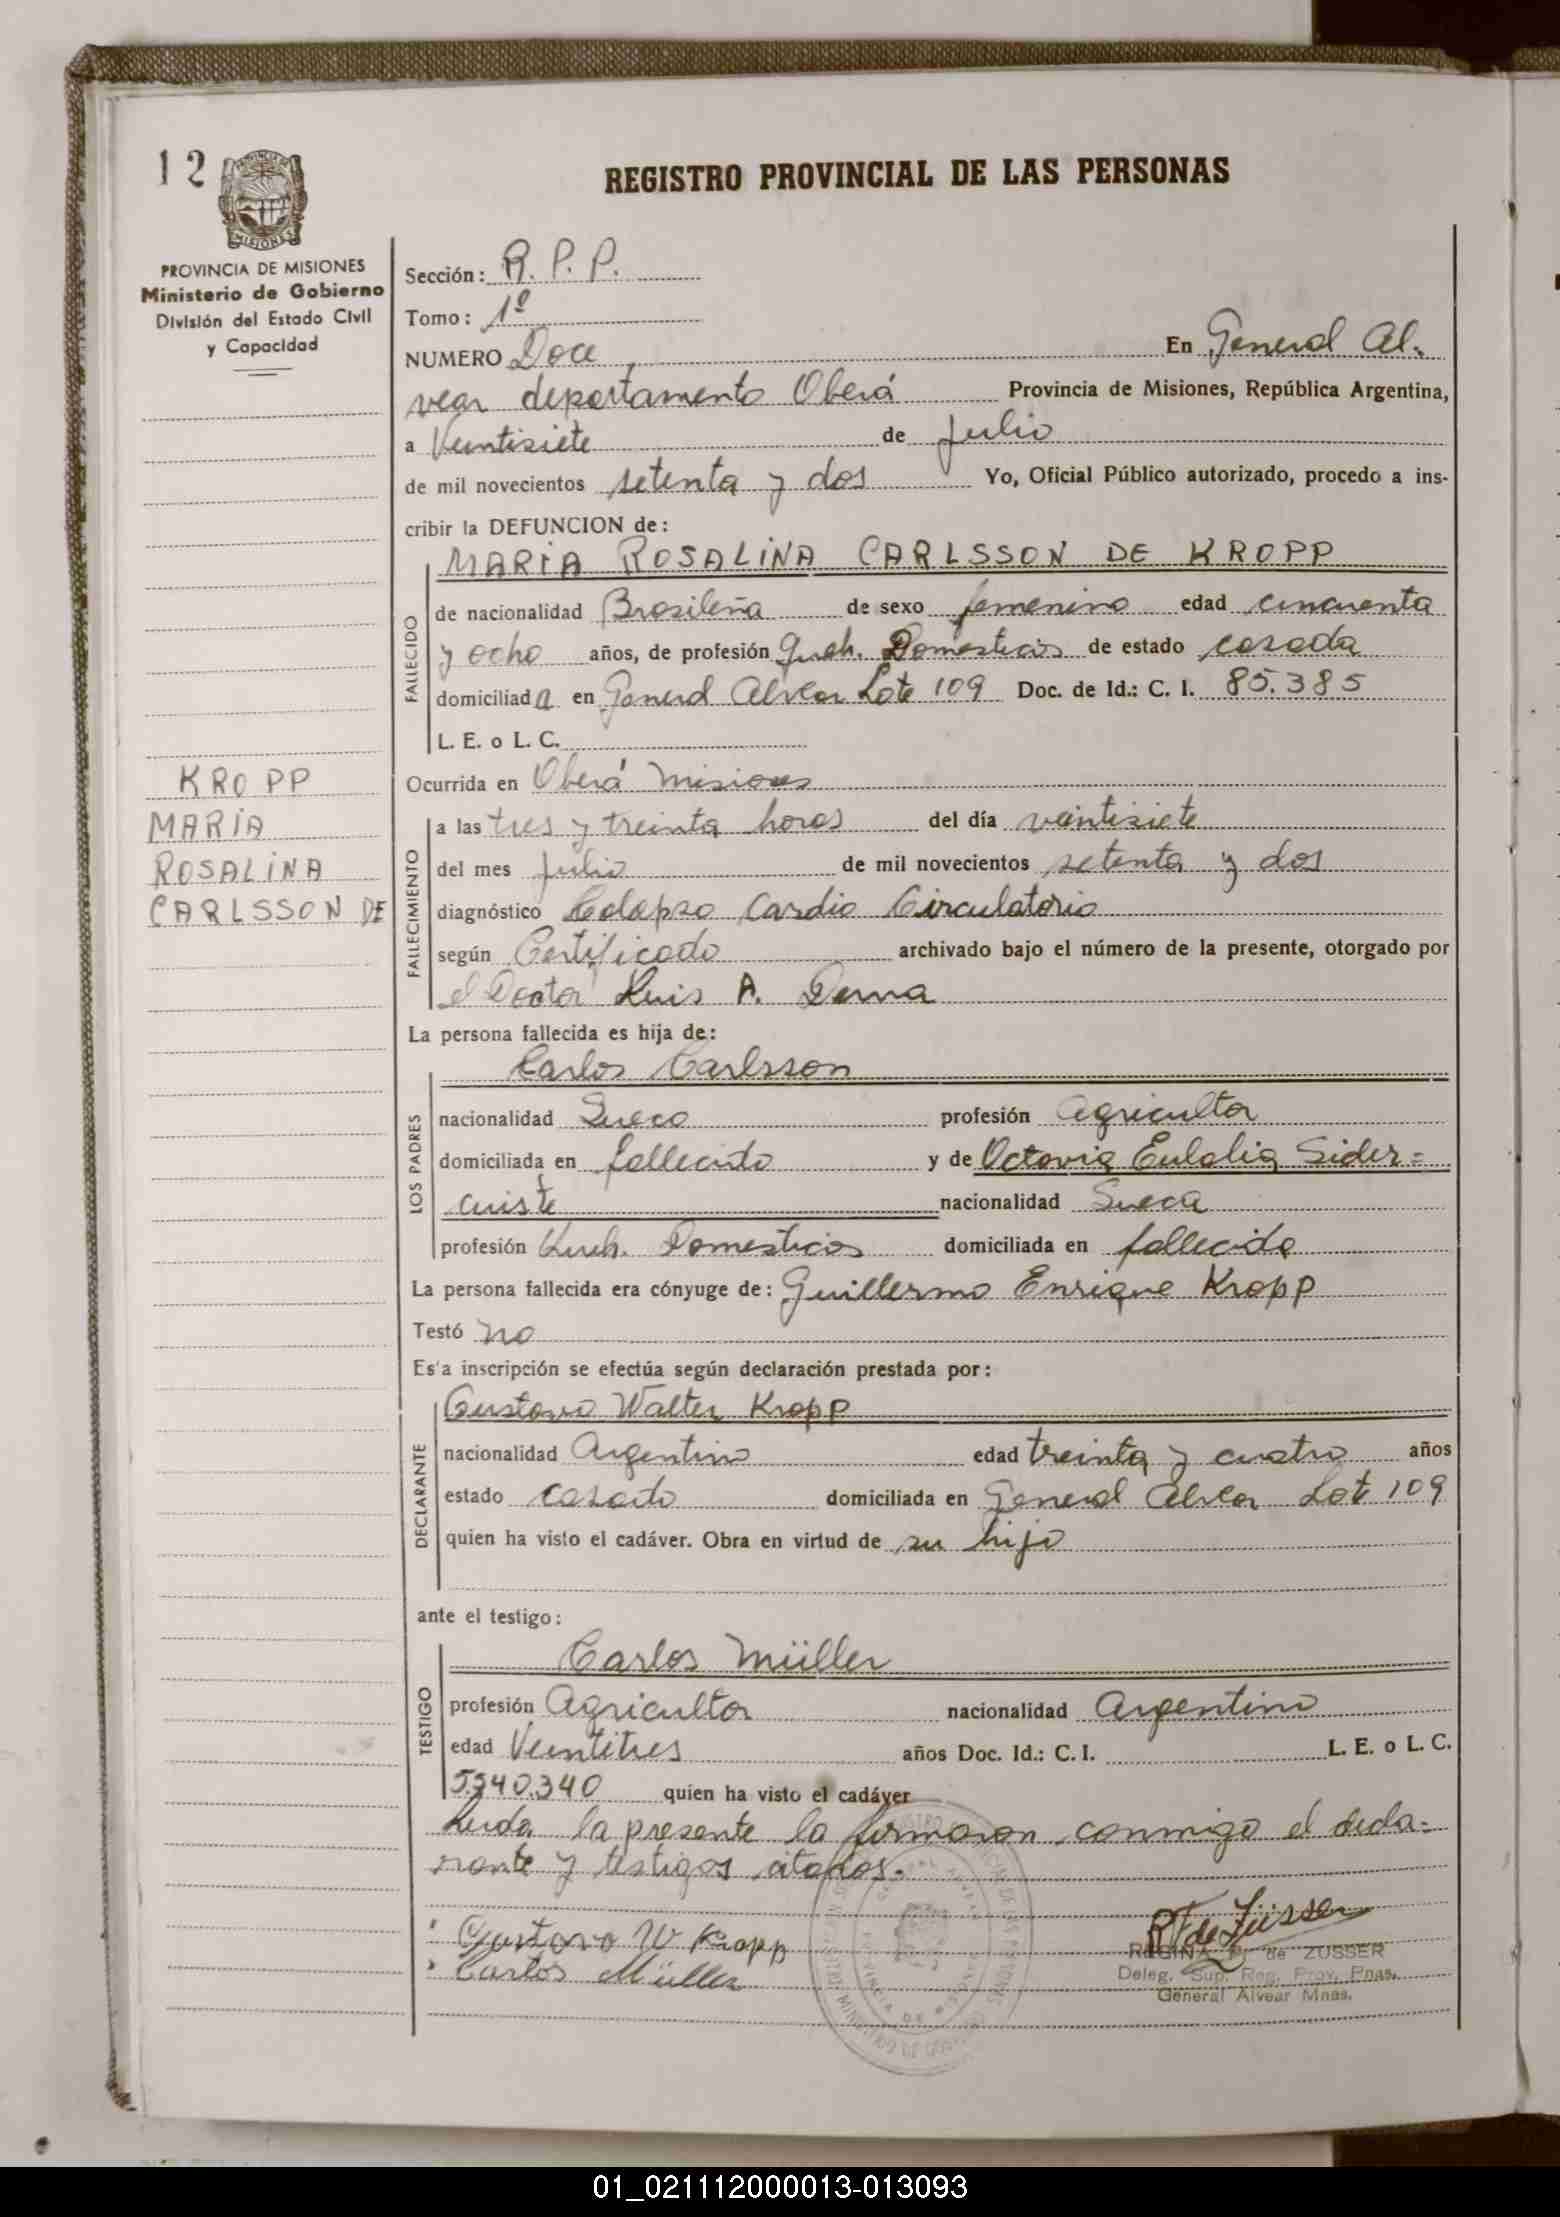 12
PROVINCIA DE MISIONES
Ministerio de Gobierno
División del Estado Civil
y Capacidad
KROPP
MARIA
ROSALINA
CARLSSON DE
REGISTRO PROVINCIAL DE LAS PERSONAS
Sección: R. P. P.
Tomo: 1º
NUMERO Doce En General Al-
vear departamento Oberá Provincia de Misiones, República Argentina,
a Veintisiete de Julio
de mil novecientos setenta y dos Yo, Oficial Público autorizado, procedo a ins-
cribir la DEFUNCION de:
FALLECIDO
MARIA ROSALINA CARLSSON DE KROPP
de nacionalidad Brasileña de sexo femenino edad cincuenta
y ocho años, de profesión Queh. Domesticos de estado casada
domiciliada en General Alvear Lote 109 Doc. de Id.: C. I. 85.385
L. E. o L. C.
Ocurrida en Oberá Misiones
FALLECIMIENTO
a las tres y treinta horas del día veintisiete
del mes Julio de mil novecientos setenta y dos
diagnóstico Colapso Cardio Circulatorio
según Certificado archivado bajo el número de la presente, otorgado por
el Doctor Luis A. Derna
La persona fallecida es hija de:
LOS PADRES
Carlos Carlsson
nacionalidad Sueco profesión Agricultor
domiciliada en fallecido y de Octavia Eulalia Sider=
cuiste nacionalidad Sueca
profesión Queh. Domesticos domiciliada en fallecida
La persona fallecida era cónyuge de: Guillermo Enrique Kropp
Testó no
Es'a inscripción se efectúa según declaración prestada por:
DECLARANTE
Gustavo Walter Kropp
nacionalidad Argentino edad treinta y cuatro años
estado casado domiciliada en General Alvear Lot 109
quien ha visto el cadáver. Obra en virtud de su hijo
ante el testigo:
TESTIGO
Carlos Müller
profesión Agricultor nacionalidad Argentino
edad Veintitres años Doc. Id.: C. I. L. E. o L. C.
5.540.340 quien ha visto el cadáver
Leida la presente la firmaron conmigo el decla=
rante y testigos citados.
Gustavo W Kropp
Carlos Müller
R P de Züsser
REGINA P. de ZUSSER
Deleg. Sup. Reg. Prov. Pnas.
General Alvear Mnes.
01_021112000013-013093